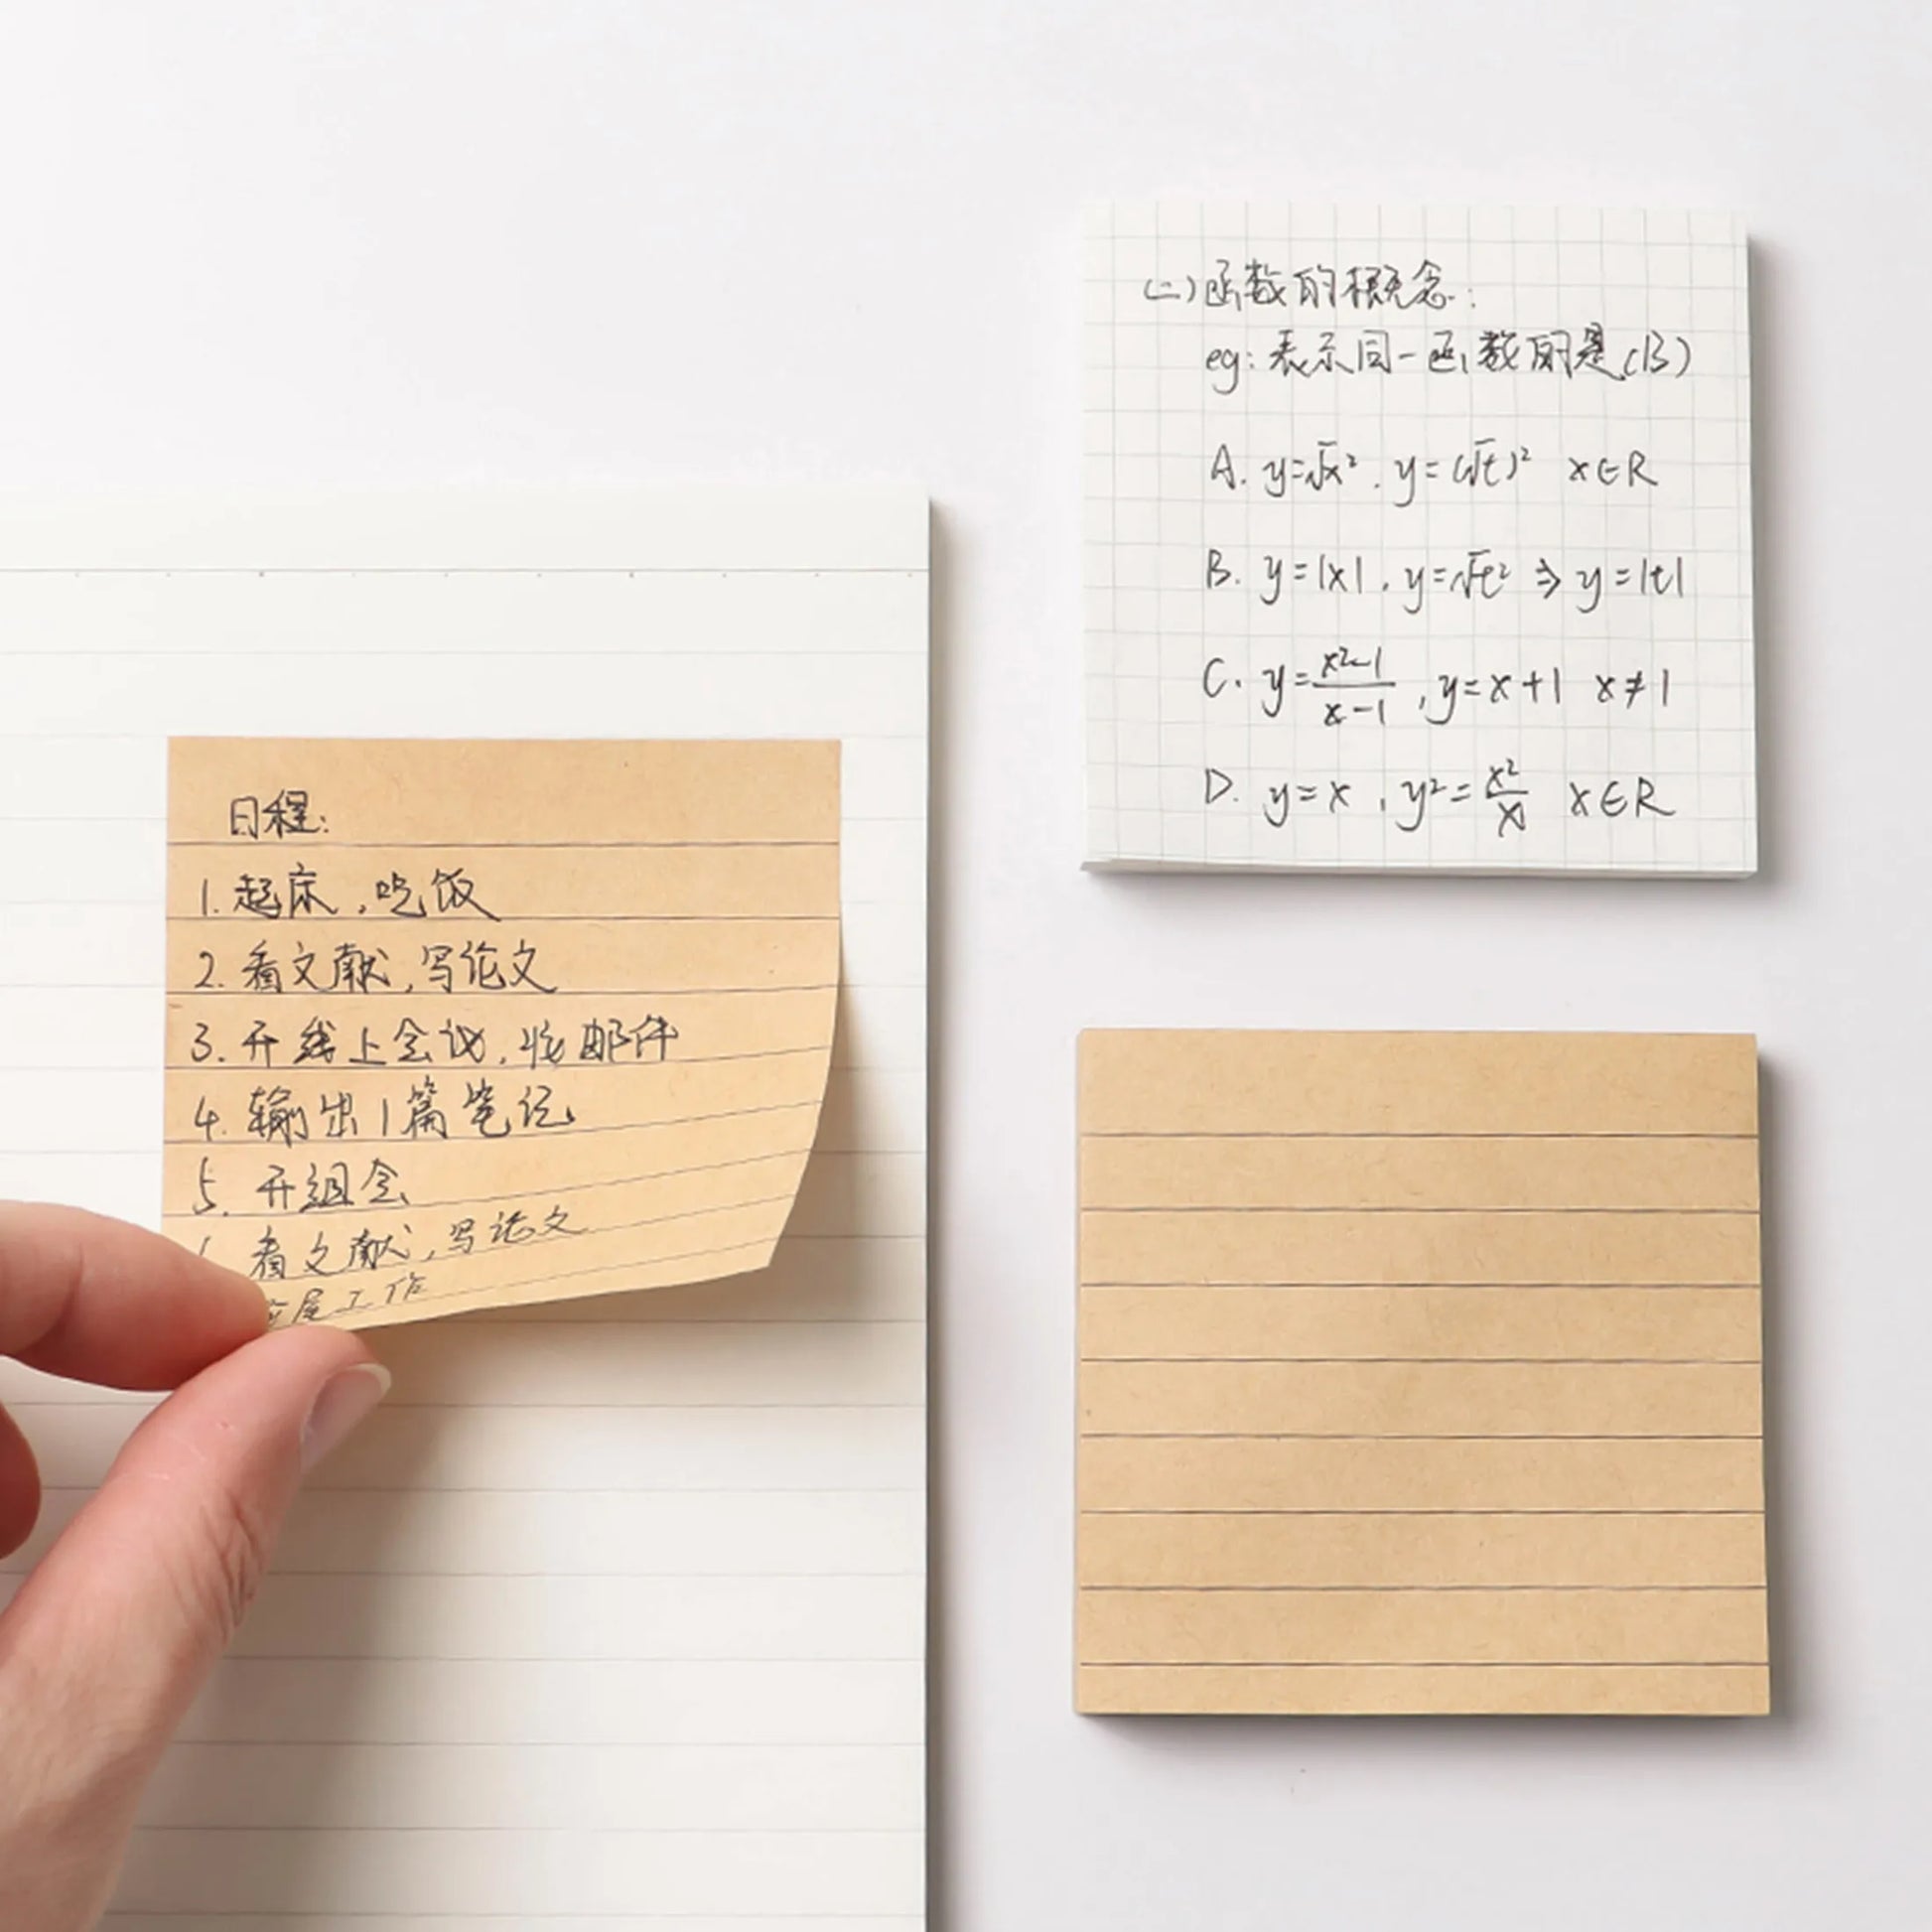 日程:
1. 起床，吃饭
2. 看文献，写论文
3. 开线上会议，收邮件
4. 输出1篇笔记
5. 开组会
看文献，写论文
展工作
(二)函数的概念:
eg: 表示同一函数的是(B)
A. y=√x². y=(√t)² x∈R
B. y=|x|, y=√t² ⇒ y=|t|
C. y=x²-1/x-1, y=x+1 x≠1
D. y=x, y²=x²/x x∈R